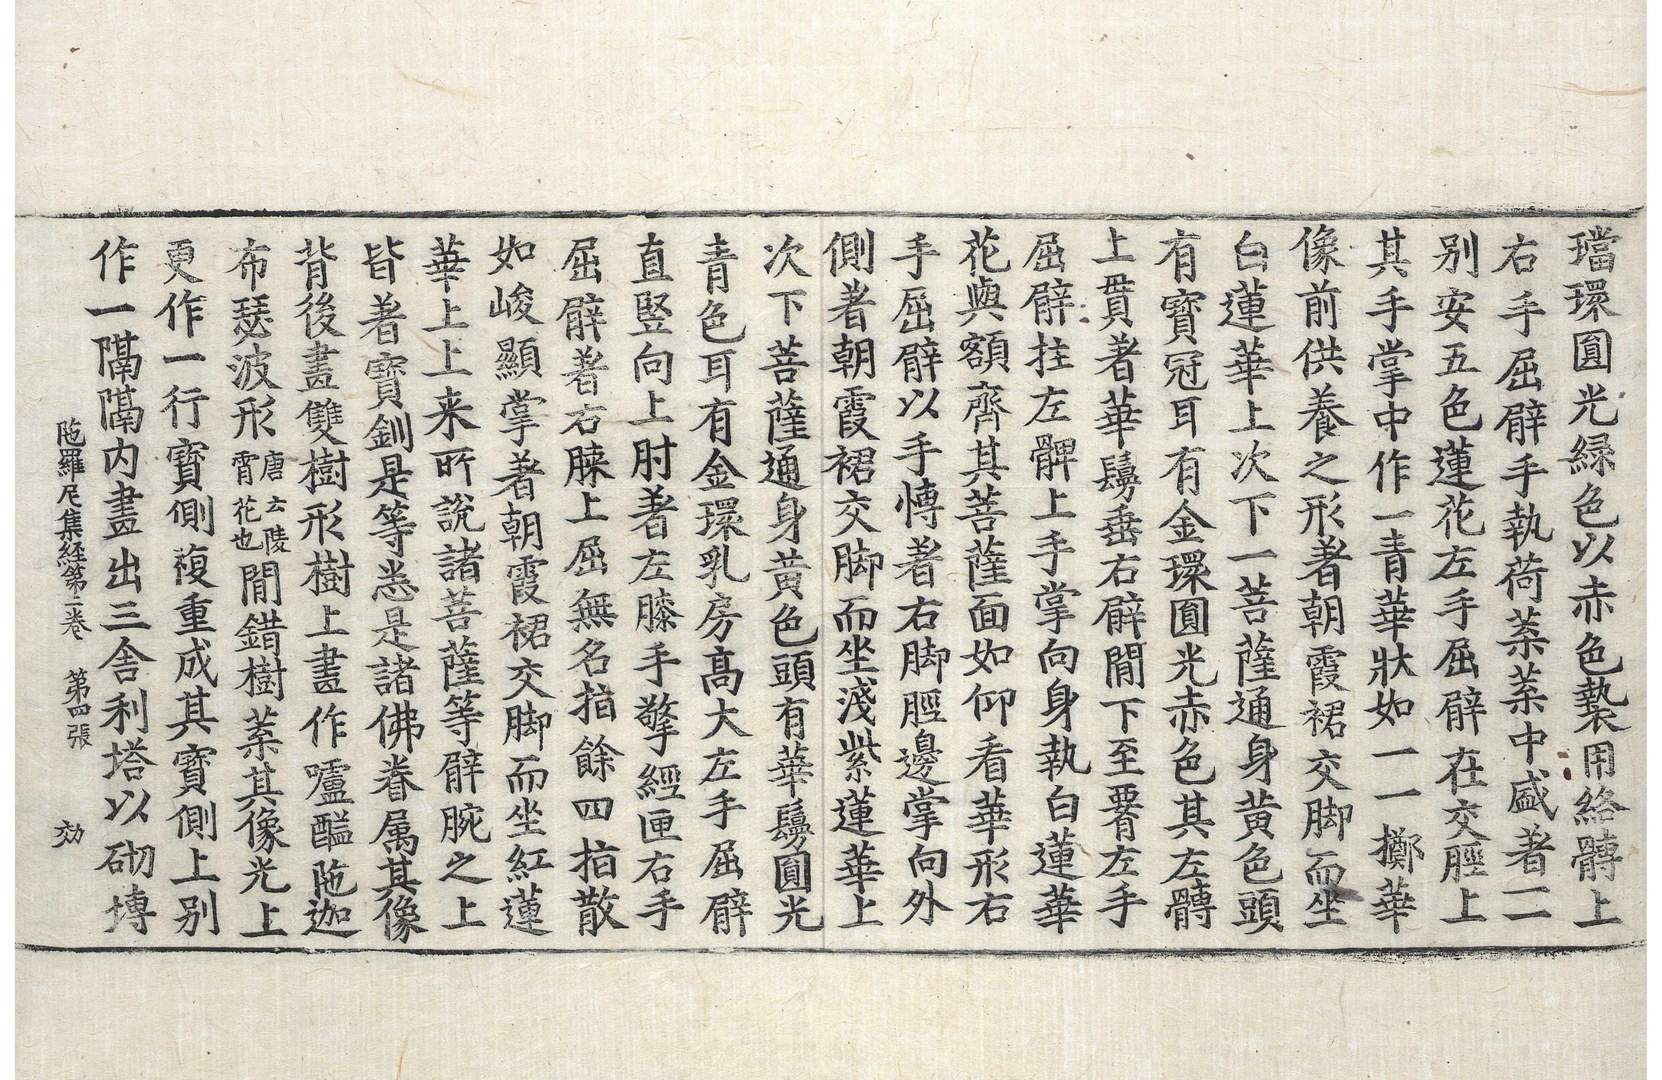 璫環圓光緑色以赤色褺用絡髆上
右手屈臂手執荷葉葉中盛著二
别安五色蓮花左手屈臂在交脛上
其手掌中作一青華狀如一一擲華
像前供養之形著朝霞裙交脚而坐
白蓮華上次下一菩薩通身黄色頭
有寶冠耳有金環圓光赤色其左髆
上貫著華鬘垂右臂閒下至署左手
屈臂拄左髀上手掌向身執白蓮華
花與額齊其菩薩面如仰看華形右
手屈臂以手慱著右脚脛邊掌向外
側著朝霞裙交脚而坐淺紫蓮華上
次下菩薩通身黄色頭有華鬘圓光
青色耳有金環乳房高大左手屈臂
直竪向上肘著左膝手擎經匣右手
屈臂著右膝上屈無名指餘四指散
如峻顯掌著朝霞裙交脚而坐紅蓮
華上上来所説諸菩薩等臂腕之上
皆著寶釧是等恙是諸佛眷属其像
背後畫雙樹形樹上畫作嚧醯陁迦
布瑟波形唐云陵霄花也閒錯樹葉其像光上
更作一行寶側複重成其寶側上别
作一隔隔内畫出三舍利塔以砌塼
陁羅尼集経第二卷 第四張 効